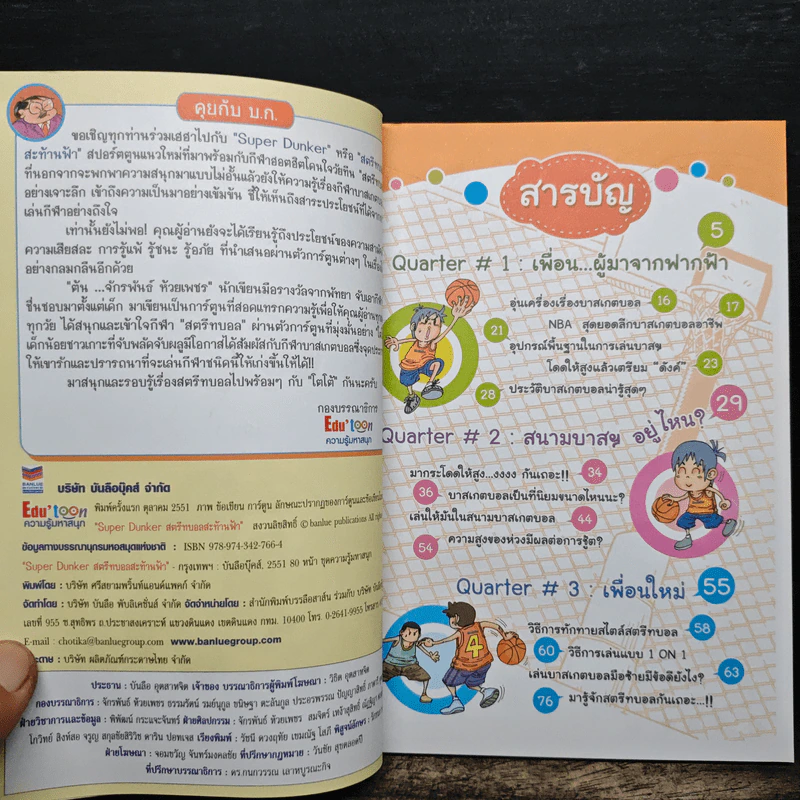 คุยกับ บ.ก.
ขอเชิญทุกท่านร่วมเฮฮาไปกับ "Super Dunker" หรือ "สตรีท
สะท้านฟ้า" สปอร์ตตูนแนวใหม่ที่มาพร้อมกับกีฬาสตรีตฮิตโดนใจวัยทีน
ที่นอกจากจะพกพาความสนุกมาแบบไม่อั้นแล้วยังให้ความรู้เรื่องกีฬาบาสเกต
อย่างเจาะลึก เข้าถึงความเป็นมาอย่างเข้มข้น ชี้ให้เห็นถึงสาระประโยชน์ที่ได้จาก
เล่นกีฬาอย่างถึงใจ
เท่านั้นยังไม่พอ! คุณผู้อ่านยังจะได้เรียนรู้ถึงประโยชน์ของความ
ความเสียสละ การรู้แพ้ รู้ชนะ รู้อภัย ที่นำเสนอผ่านตัวการ์ตูนต่างๆ ใน
อย่างกลมกลืนอีกด้วย
"ตัน ...จักรพันธ์ ห้วยเพชร" นักเขียนมือรางวัลจากพัทยา จับเอา
ชื่นชอบมาตั้งแต่เด็ก มาเขียนเป็นการ์ตูนที่สอดแทรกความรู้เพื่อให้คุณผู้อ่าน
ทุกวัย ได้สนุกและเข้าใจกีฬา "สตรีทบอล" ผ่านตัวการ์ตูนที่มุ่งมั่นอย่าง
เด็กน้อยชาวเกาะที่จับพลัดจับผลูมีโอกาสได้สัมผัสกับกีฬาบาสเกตบอลซึ่งจุด
ให้เขารักและปรารถนาที่จะเล่นกีฬาชนิดนี้ให้เก่งขึ้นให้ได้!!
มาสนุกและรอบรู้เรื่องสตรีทบอลไปพร้อมๆ กับ "โตโต้" กันนะครับ
กองบรรณาธิการ
Edu'toon
ความรู้มหาสนุก
BANLUE
บริษัท บันลือบุ๊คส์ จำกัด
Edu'toon
ความรู้มหาสนุก
พิมพ์ครั้งแรก ตุลาคม 2551 ภาพ ข้อเขียน การ์ตูน ลักษณะปรากฏของการ์ตูนและข้อเขียน
"Super Dunker สตรีทบอลสะท้านฟ้า" สงวนลิขสิทธิ์ © banlue publications All
ข้อมูลทางบรรณานุกรมหอสมุดแห่งชาติ : ISBN 978-974-342-766-4
"Super Dunker สตรีทบอลสะท้านฟ้า" - กรุงเทพฯ : บันลือบุ๊คส์, 2551 80 หน้า ชุดความรู้มหาสนุก
พิมพ์โดย : บริษัท ศรีสยามพริ้นท์แอนด์แพคก์ จำกัด
จัดทำโดย : บริษัท บันลือ พับลิเคชั่นส์ จำกัด จัดจำหน่ายโดย : สำนักพิมพ์บรรลือสาส์น ร่วมกับ บริษัท
เลขที่ 955 ซ.สุทธิพร ถ.ประชาสงเคราะห์ แขวงดินแดง เขตดินแดง กทม. 10400 โทร. 0-2641-9955
E-mail : chotika@banluegroup.com www.banluegroup.com
: บริษัท ผลิตภัณฑ์กระดาษไทย จำกัด
ประธาน : บันลือ อุตสาหจิต เจ้าของ บรรณาธิการผู้พิมพ์โฆษณา : วิธิต อุตสาหจิต
กองบรรณาธิการ : จักรพันธ์ ห้วยเพชร ธรรมรัตน์
ฝ่ายวิชาการและข้อมูล : พิพัฒน์ กระแจะจันทร์ ฝ่ายศิลปกรรม : จักรพันธ์ ห้วยเพชร
โกวิทย์ สิงห์สอ จรูญ เรียงพิมพ์ : รัชนี
ฝ่ายโฆษณา : จอมขวัญ จันทร์มงคลชัย ที่ปรึกษากฎหมาย : วันชัย สุขตลอดปี
ที่ปรึกษาบรรณาธิการ : ดร.กนกวรรณ เลาหบูรณะกิจ
สารบัญ
5
Quarter # 1 : เพื่อน...ผู้มาจากฟากฟ้า
อุ่นเครื่องเรื่องบาสเกตบอล 16
NBA สุดยอดลีกบาสเกตบอลอาชีพ 17
21 อุปกรณ์พื้นฐานในการเล่นบาสฯ
โดดให้สูงแล้วเตรียม "ดังค์" 23
28 ประวัติบาสเกตบอลน่ารู้สุดๆ
29
Quarter # 2 : สนามบาสฯ อยู่ไหน?
มากระโดดให้สูง...งงงง กันเถอะ!! 34
36 บาสเกตบอลเป็นที่นิยมขนาดไหนนะ?
เล่นให้มันในสนามบาสเกตบอล 44
54 ความสูงของห่วงมีผลต่อการชู้ต?
Quarter # 3 : เพื่อนใหม่ 55
4
วิธีการทักทายสไตล์สตรีทบอล 58
60 วิธีการเล่นแบบ 1 ON 1
เล่นบาสเกตบอลมือซ้ายมีข้อดียังไง? 63
76 มารู้จักสตรีทบอลกันเถอะ...!!